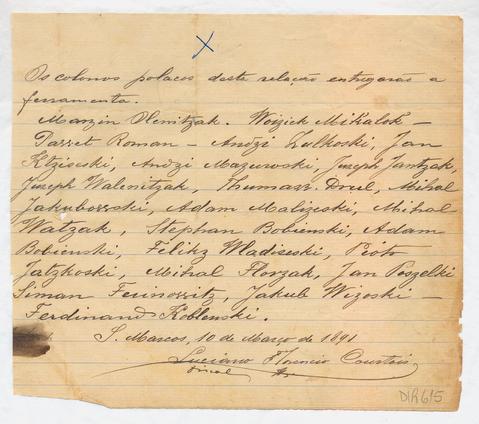 Os colonos polacos desta relação entregarão a
ferramenta.
Marzin Olenitzak. Woizick Mikalok —
Parret Roman — Andzi Zulkoski, Jan
Ktziseski, Andzi Mazurowski, Juseph Jantzak,
Juseph Walenitzak, Thumasz. Drul, Mihal
Jakubosski, Adam Malizeski, Mihal
Watzak, Stephan Bobienski, Adam
Bobienski, Felikz Wladiseski, Piótr
Jatzkoski, Mihal Florzak, Jan Poszelki
Siman Ferinossitz, Jakub Wizoski —
Ferdinand Koblenski.
S. Marcos, 10 de Março de 1891
Luciano Florencio Courtois
Fiscal
DIR615